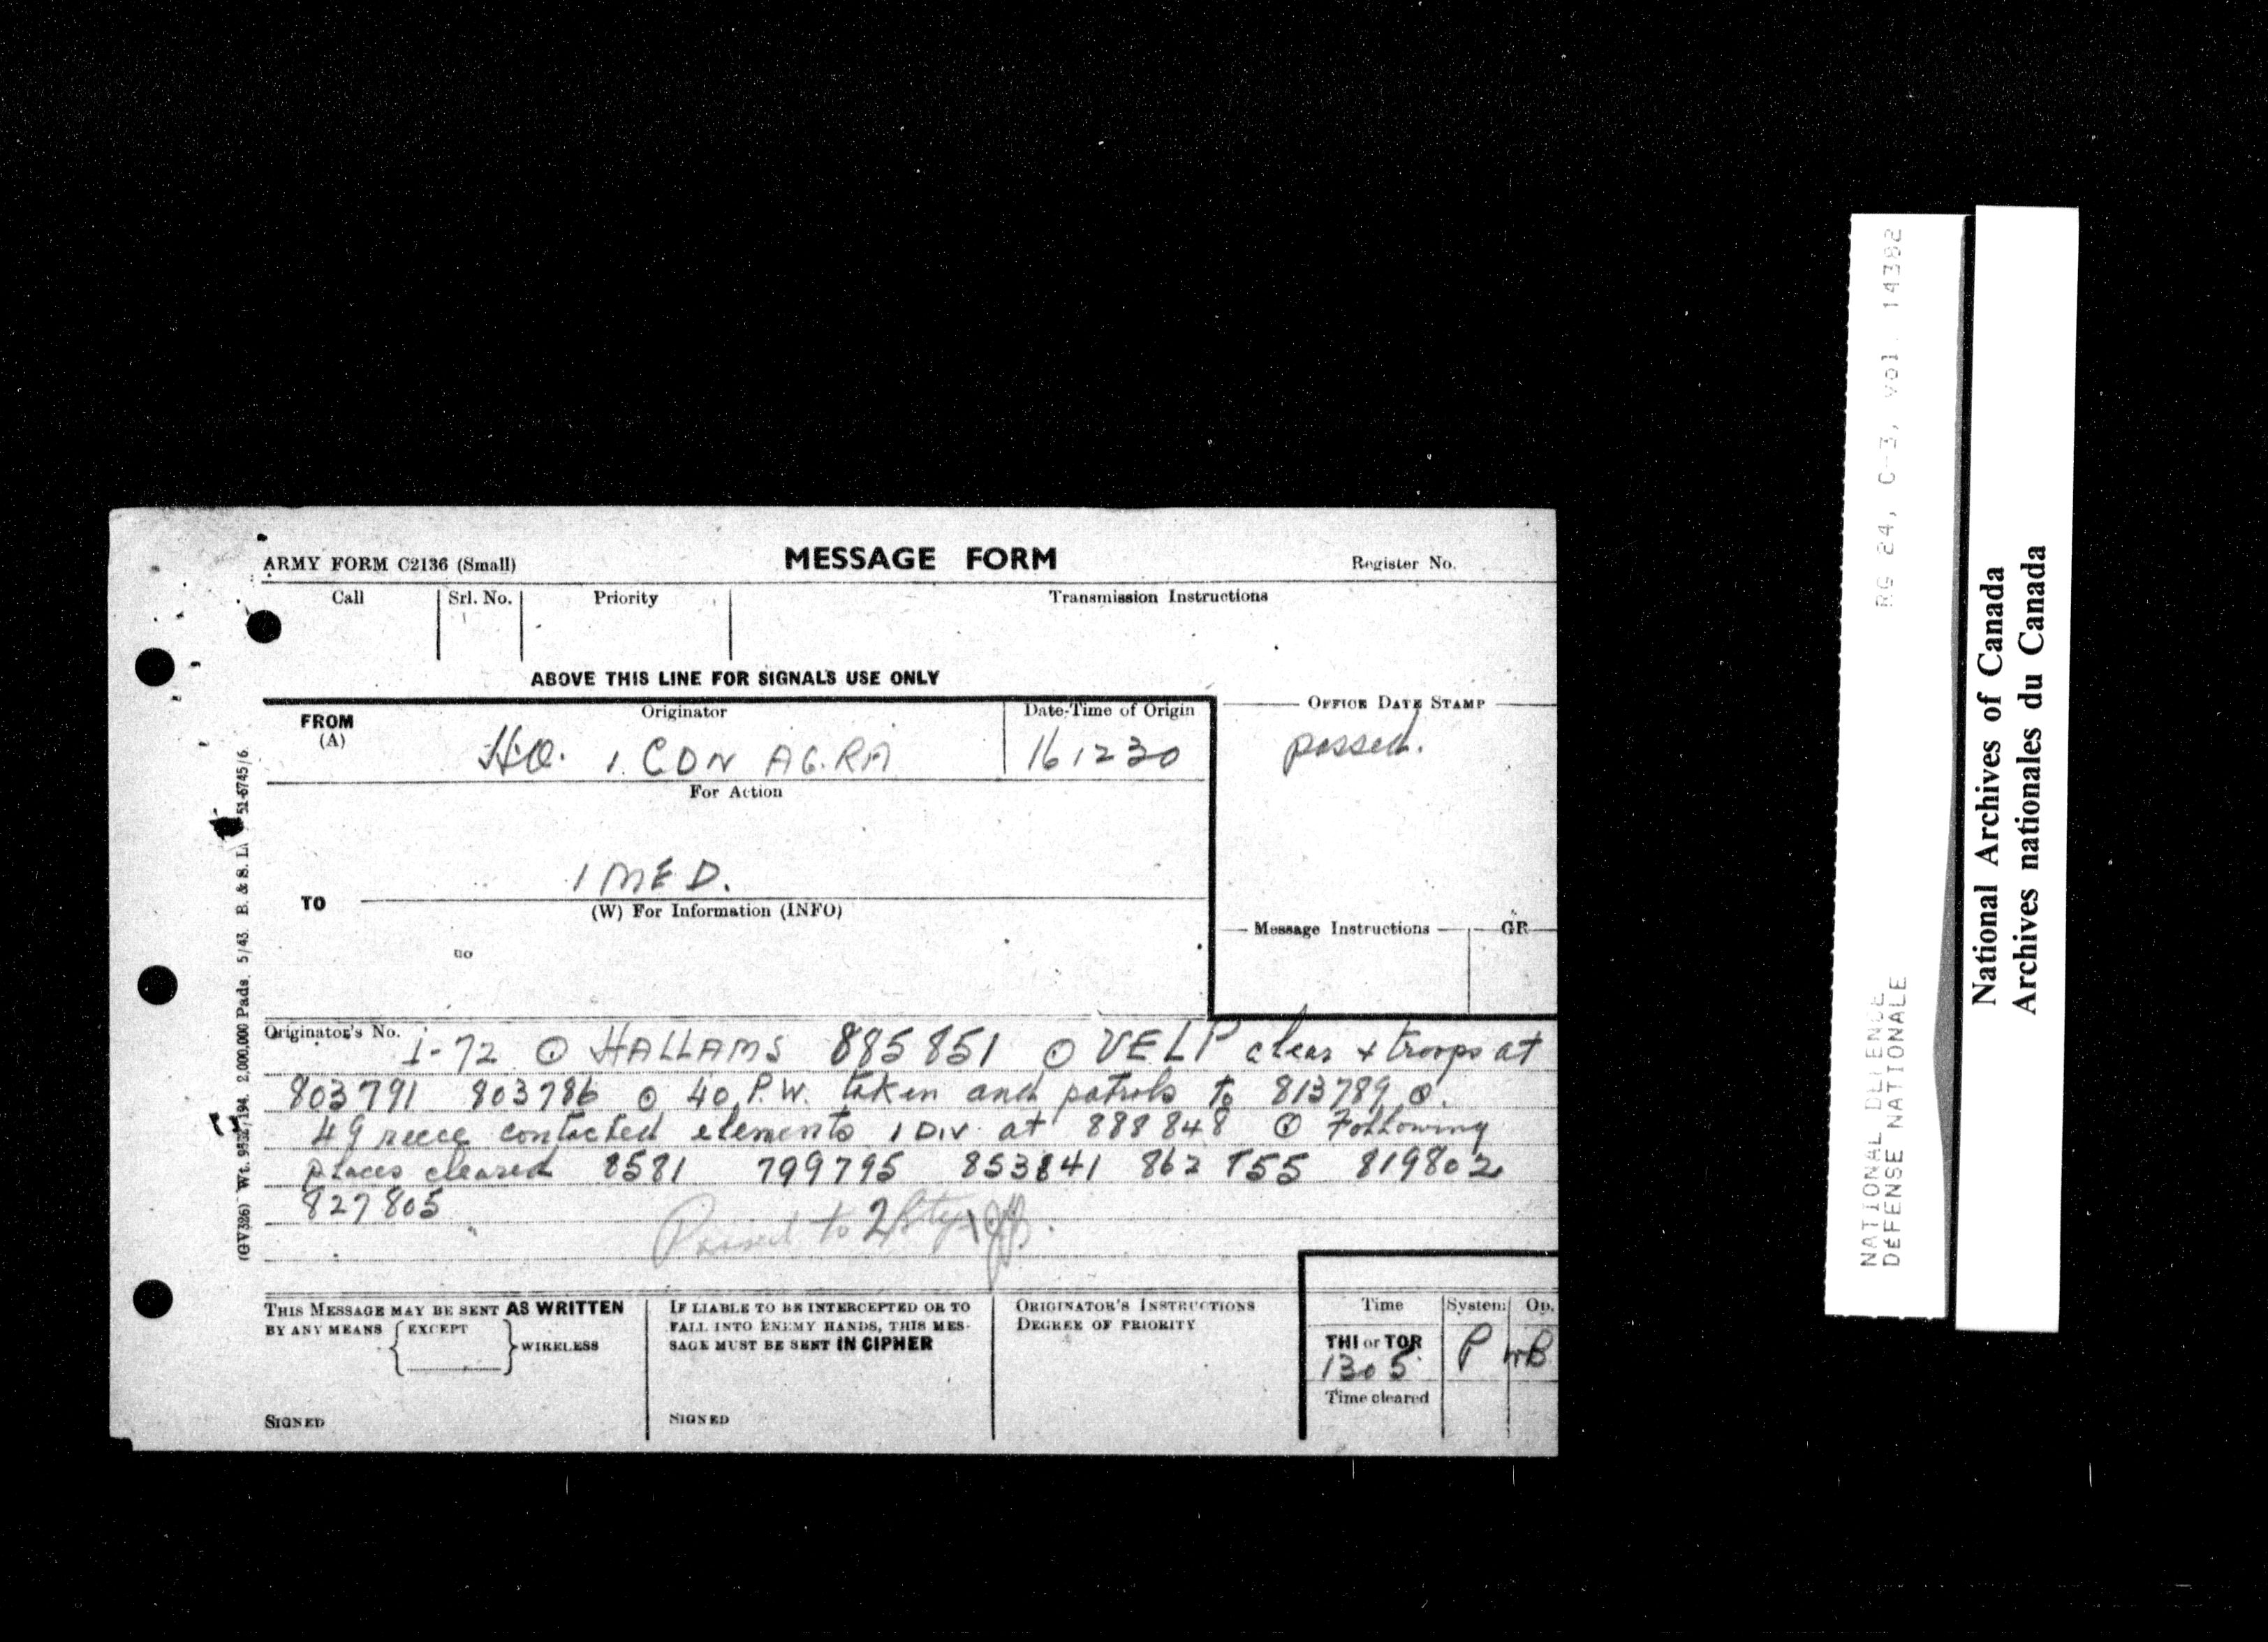 ARMY FORM C2136 (Small) MESSAGE FORM Register No.
Call Srl. No. Priority Transmission Instructions
ABOVE THIS LINE FOR SIGNALS USE ONLY
FROM (A) Originator Date-Time of Origin OFFICE DATE STAMP
HQ. 1 CDN AGRA 161230 passed.
For Action
1 MED.
TO
(W) For Information (INFO)
Message Instructions GR
Originator's No.
I-72 ⊙ HALLAMS 885851 ⊙ VELP clear + troops at
803791 803786 ⊙ 40 P.W. taken and patrols to 813789 ⊙.
49 recce contacted elements 1 DIV at 888848 ⊙ Following
places cleared 8581 799795 853841 862855 819802
827805
Passed to 2 Bty
THIS MESSAGE MAY BE SENT AS WRITTEN
BY ANY MEANS { EXCEPT } WIRELESS
SIGNED
IF LIABLE TO BE INTERCEPTED OR TO
FALL INTO ENEMY HANDS, THIS MES-
SAGE MUST BE SENT IN CIPHER
SIGNED
ORIGINATOR'S INSTRUCTIONS
DEGREE OF PRIORITY
Time System Op.
THI or TOR
1305 P
Time cleared
2,000,000 Pads. 5/43 B. & S. 51-6745/6
RG 24, C-3, vol. 14382
NATIONAL DEFENCE
DEFENSE NATIONALE
National Archives of Canada
Archives nationales du Canada